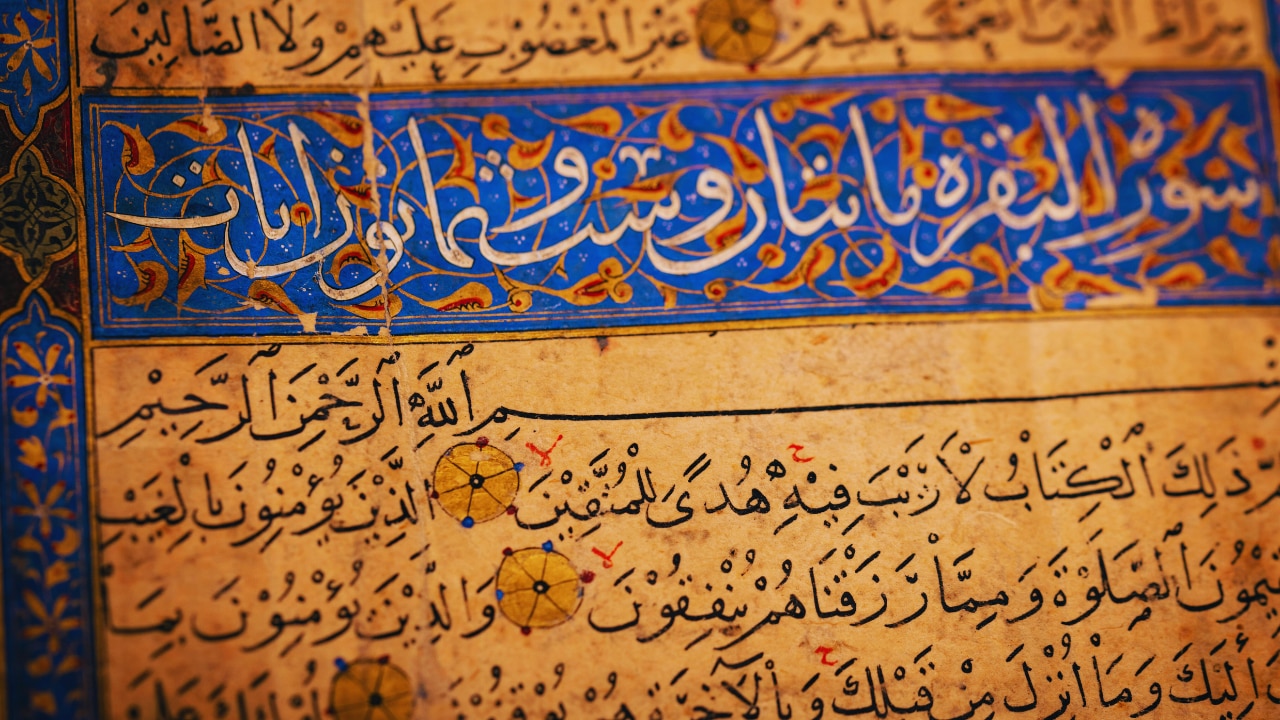 صِرَاطَ الَّذِينَ أَنْعَمْتَ عَلَيْهِمْ غَيْرِ الْمَغْضُوبِ عَلَيْهِمْ وَلَا الضَّالِّيْنَ
سورة البقره مايتان وست وثمانون ايات
بِسْمِ ٱللَّهِ ٱلرَّحْمٰنِ ٱلرَّحِيمِ
ذَلِكَ ٱلْكِتَابُ لَا رَيْبَ فِيْهِ هُدًى لِلْمُتَّقِيْنَ الَّذِيْنَ يُؤْمِنُوْنَ بِالْغَيْبِ
ٱلصَّلَوٰةَ وَمِمَّا رَزَقْنَاهُمْ يُنْفِقُوْنَ وَالَّذِيْنَ يُؤْمِنُوْنَ بِمَا
اِلَيْكَ وَمَا اُنْزِلَ مِنْ قَبْلِكَ وَبِالْآخِرَةِ هُمْ يُوْقِنُوْنَ